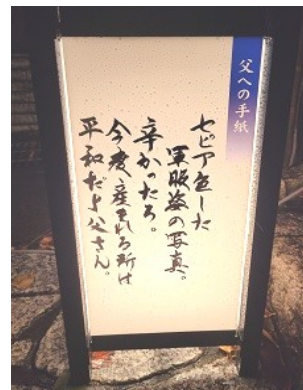 父への手紙
セピア色した
軍服姿の写真。
辛かったろ。
今度、産まれる所は
平和だよ父さん。